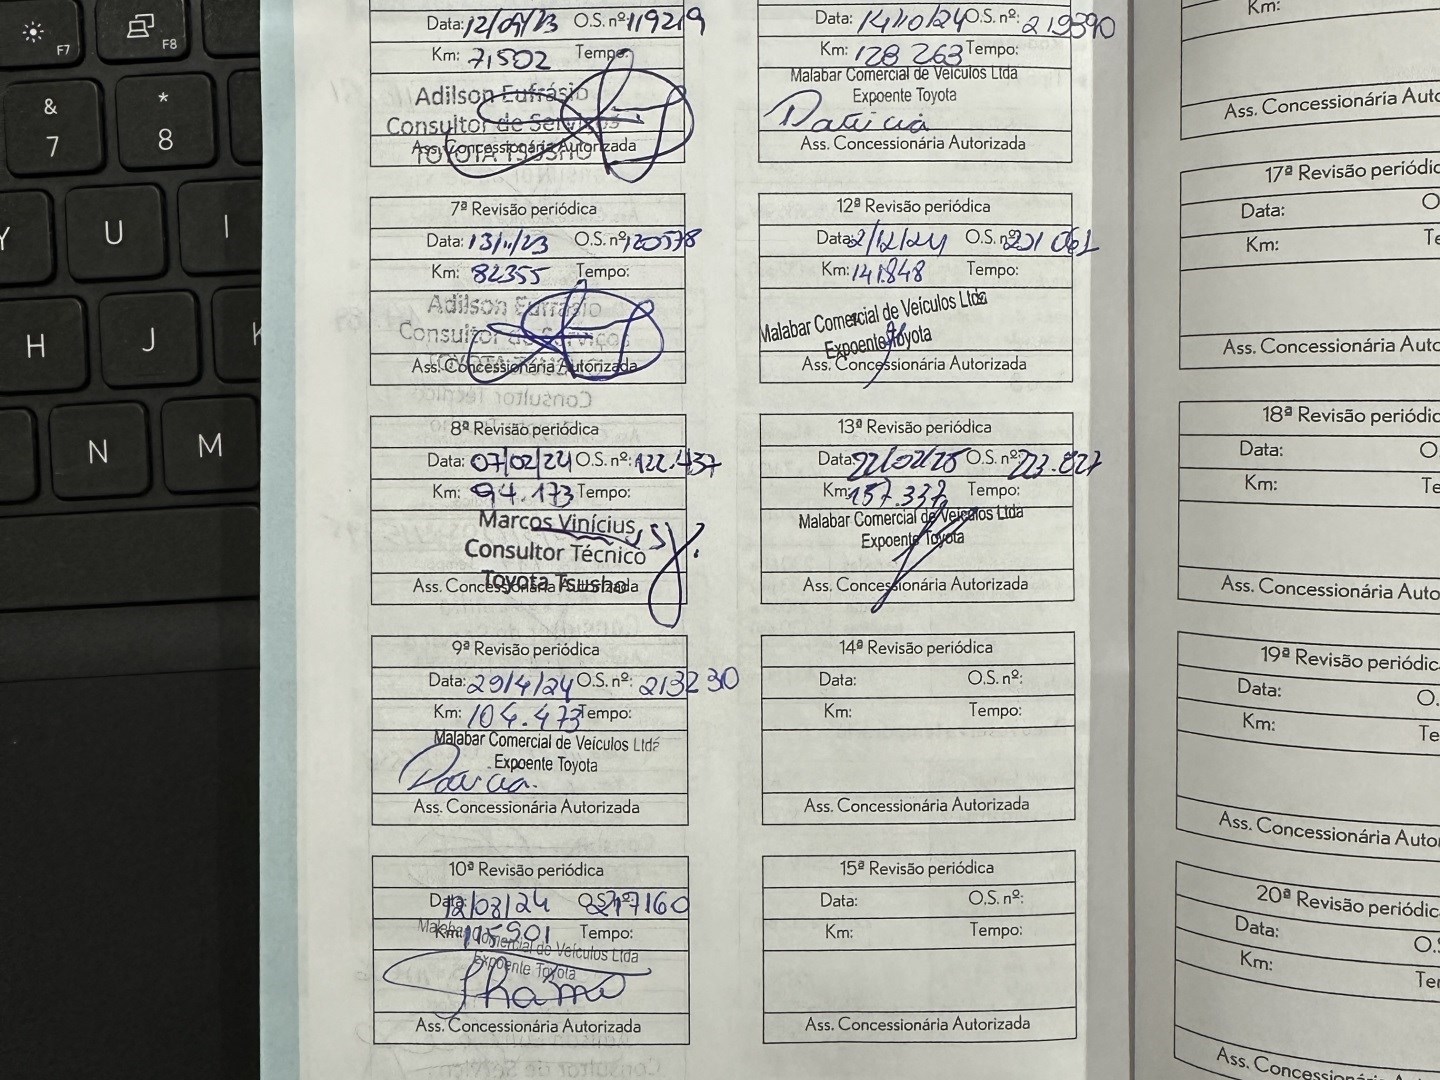 F7
F8
&
7
*
8
Y
U
I
H
J
K
N
M
Data: 12/09/23 O.S. nº: 119219
Km: 71502 Tempo:
Adilson Eufrásio
Consultor de Serviços
TOYOTA TSUSHO
Ass. Concessionária Autorizada
7ª Revisão periódica
Data: 13/11/23 O.S. nº: 120578
Km: 82355 Tempo:
Adilson Eufrásio
Consultor de Serviços
Ass. Concessionária Autorizada
8ª Revisão periódica
Data: 07/02/24 O.S. nº: 122.437
Km: 94.173 Tempo:
Marcos Vinícius
Consultor Técnico
Toyota Tsusho
Ass. Concessionária Autorizada
9ª Revisão periódica
Data: 29/4/24 O.S. nº: 213230
Km: 104.473 Tempo:
Malabar Comercial de Veículos Ltda
Expoente Toyota
Ass. Concessionária Autorizada
10ª Revisão periódica
Data: 12/08/24 O.S. nº: 217160
Km: 115901 Tempo:
Malabar Comercial de Veículos Ltda
Expoente Toyota
Ass. Concessionária Autorizada
Data: 14/10/24 O.S. nº: 219390
Km: 128 263 Tempo:
Malabar Comercial de Veículos Ltda
Expoente Toyota
Patricia
Ass. Concessionária Autorizada
12ª Revisão periódica
Data: 2/12/24 O.S. nº: 221 061
Km: 141.848 Tempo:
Malabar Comercial de Veículos Ltda
Expoente Toyota
Ass. Concessionária Autorizada
13ª Revisão periódica
Data: 22/02/25 O.S. nº: 223.827
Km: 157.337 Tempo:
Malabar Comercial de Veículos Ltda
Expoente Toyota
Ass. Concessionária Autorizada
14ª Revisão periódica
Data: O.S. nº:
Km: Tempo:
Ass. Concessionária Autorizada
15ª Revisão periódica
Data: O.S. nº:
Km: Tempo:
Ass. Concessionária Autorizada
Km:
Ass. Concessionária Auto
17ª Revisão periódic
Data: O
Km: Te
Ass. Concessionária Auto
18ª Revisão periódic
Data: O
Km: Te
Ass. Concessionária Auto
19ª Revisão periódic
Data: O.
Km: Te
Ass. Concessionária Autor
20ª Revisão periódic
Data: O.S
Km: Ter
Ass. Concessionária Autor